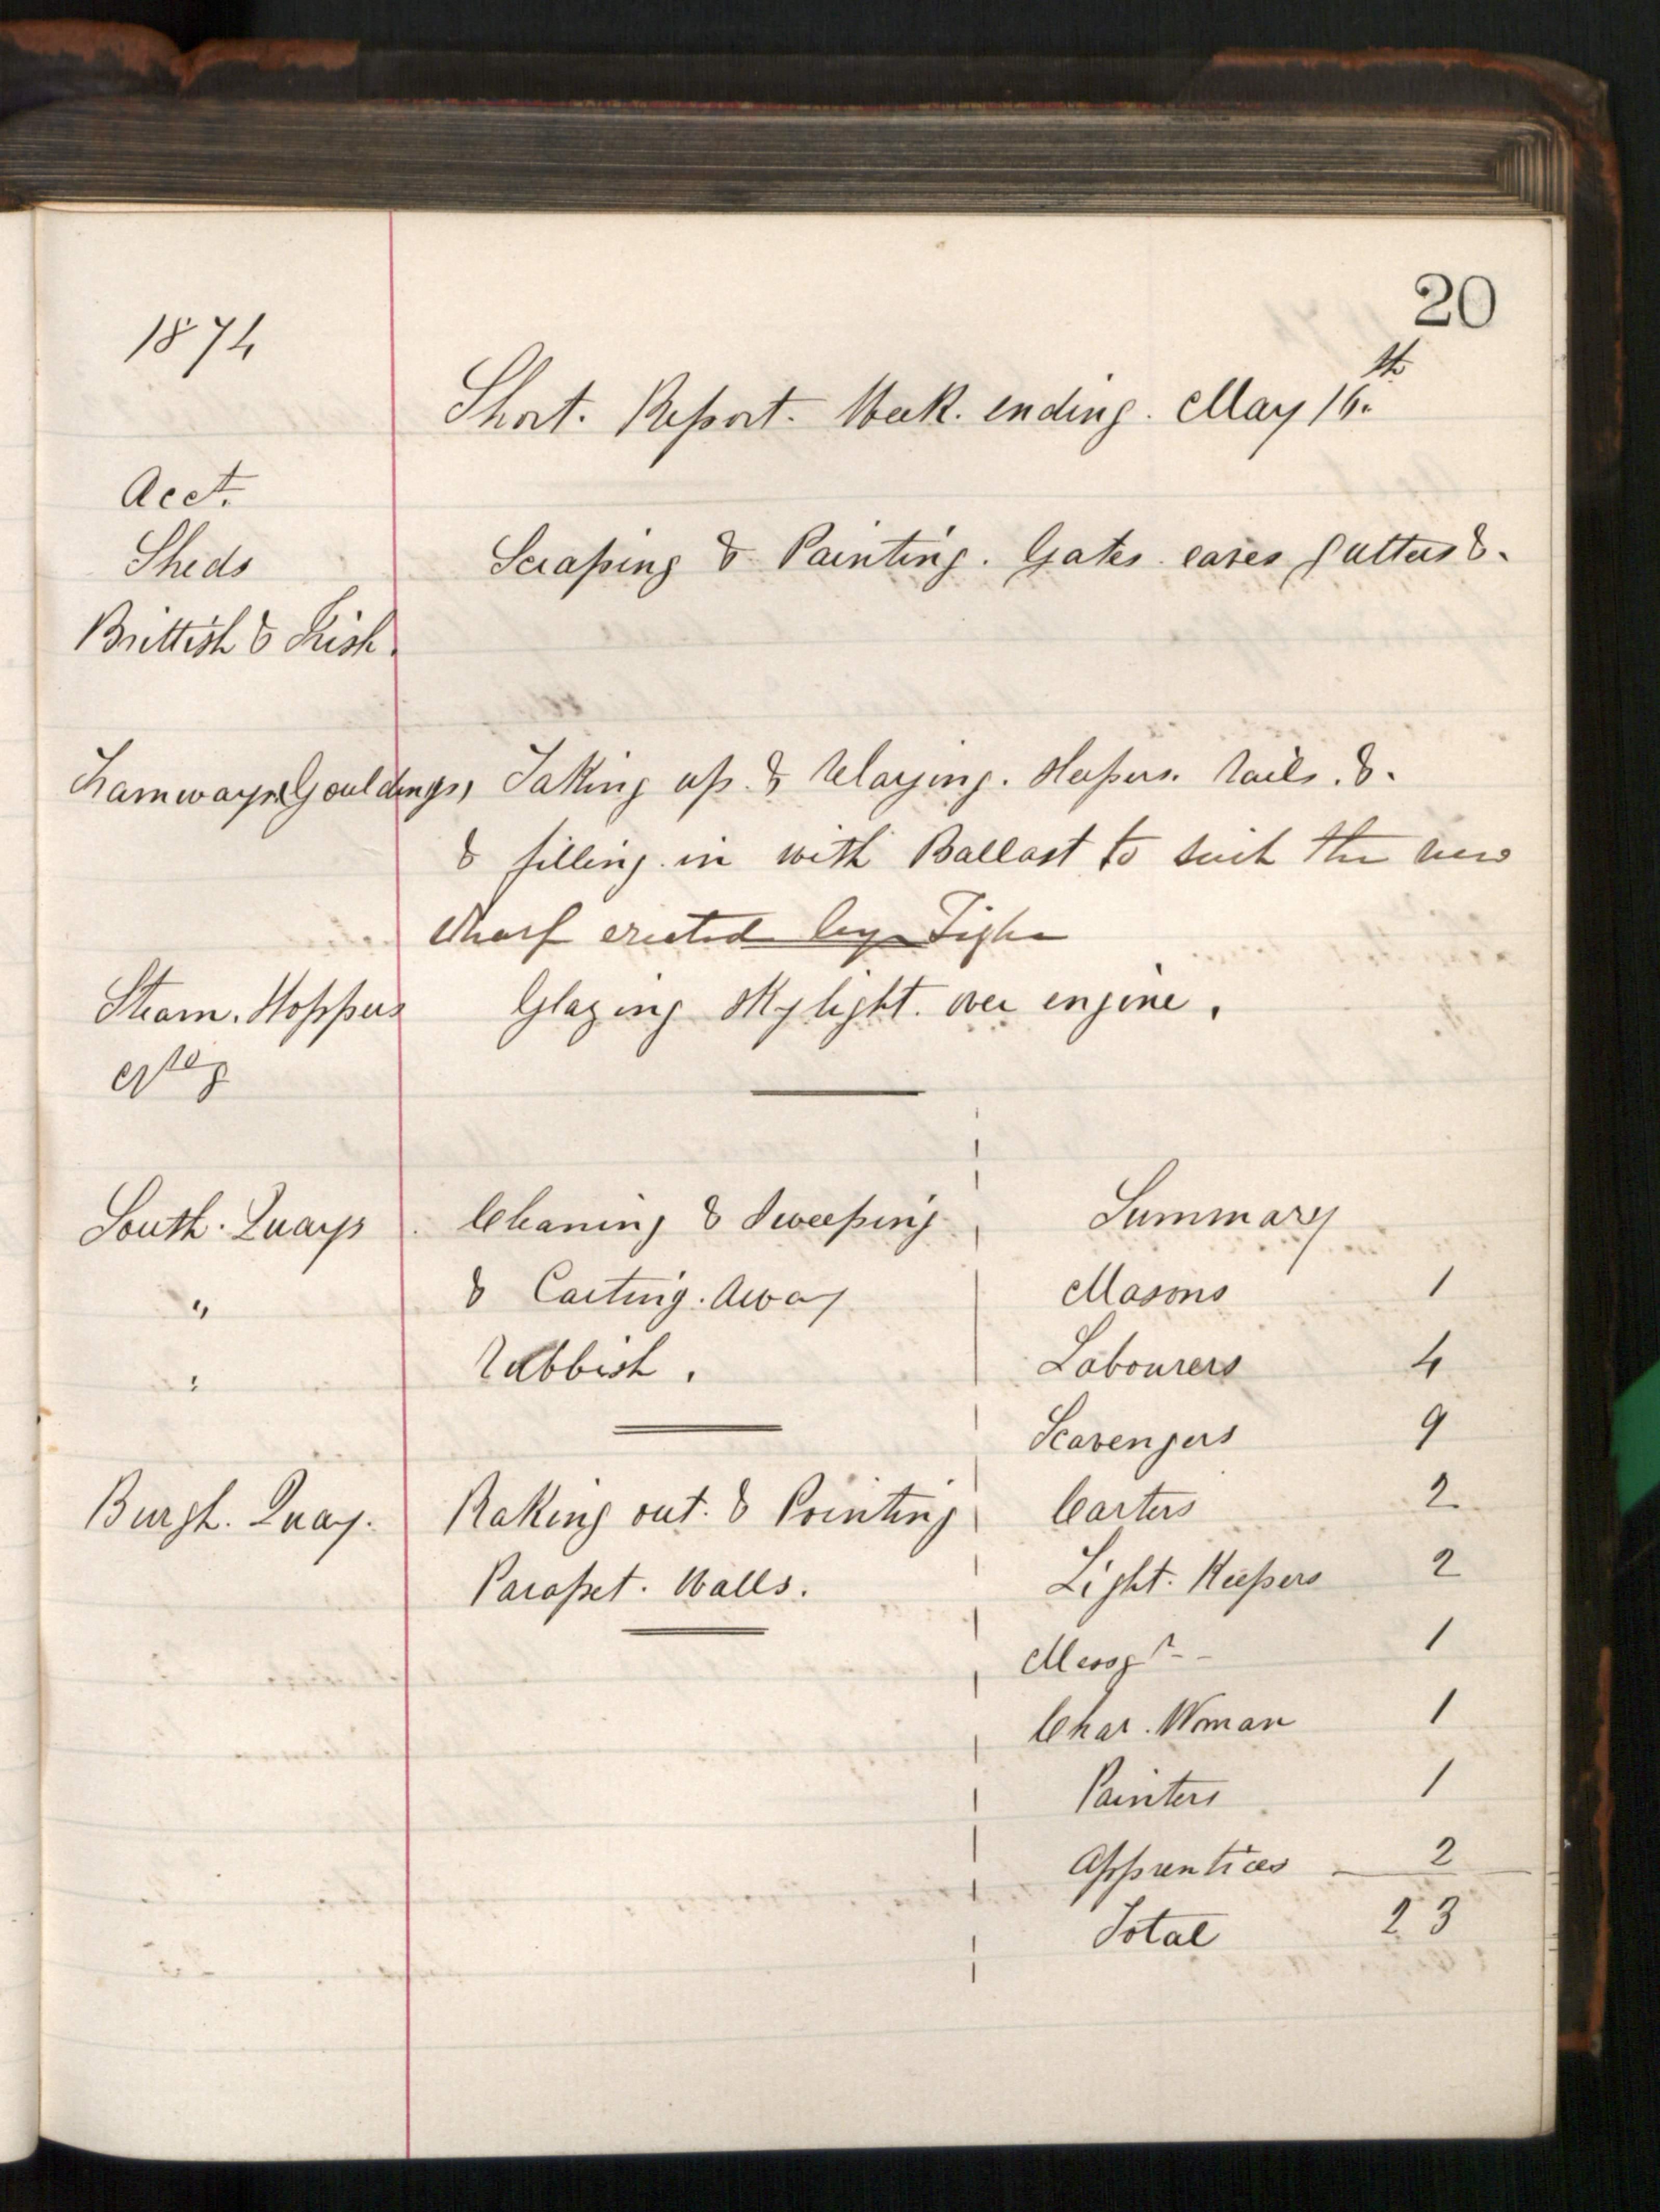 20
1874
Short. Report. Week. ending. May 16.th
Acct.
Sheds Scraping & Painting. Gates. eaves gutters &.
Brittish & Irish
Tramways Gouldings, Taking up. & relaying. sleepers. rails. &.
& filling in with Ballast to suit the new
wharf erected by Tighe
Steam. Hoppers Glazing skylight. over engine.
South. Quays Cleaning & Sweeping
" & Carting. Away
" Rubbish.
Burgh. Quay. Raking out. & Pointing
Parapet. Walls.
Summary
Masons 1
Labourers 4
Scavengers 9
Carters 2
Light. Keepers 2
Messgr 1
Char. Woman 1
Painters 1
Apprentices 2
Total 23